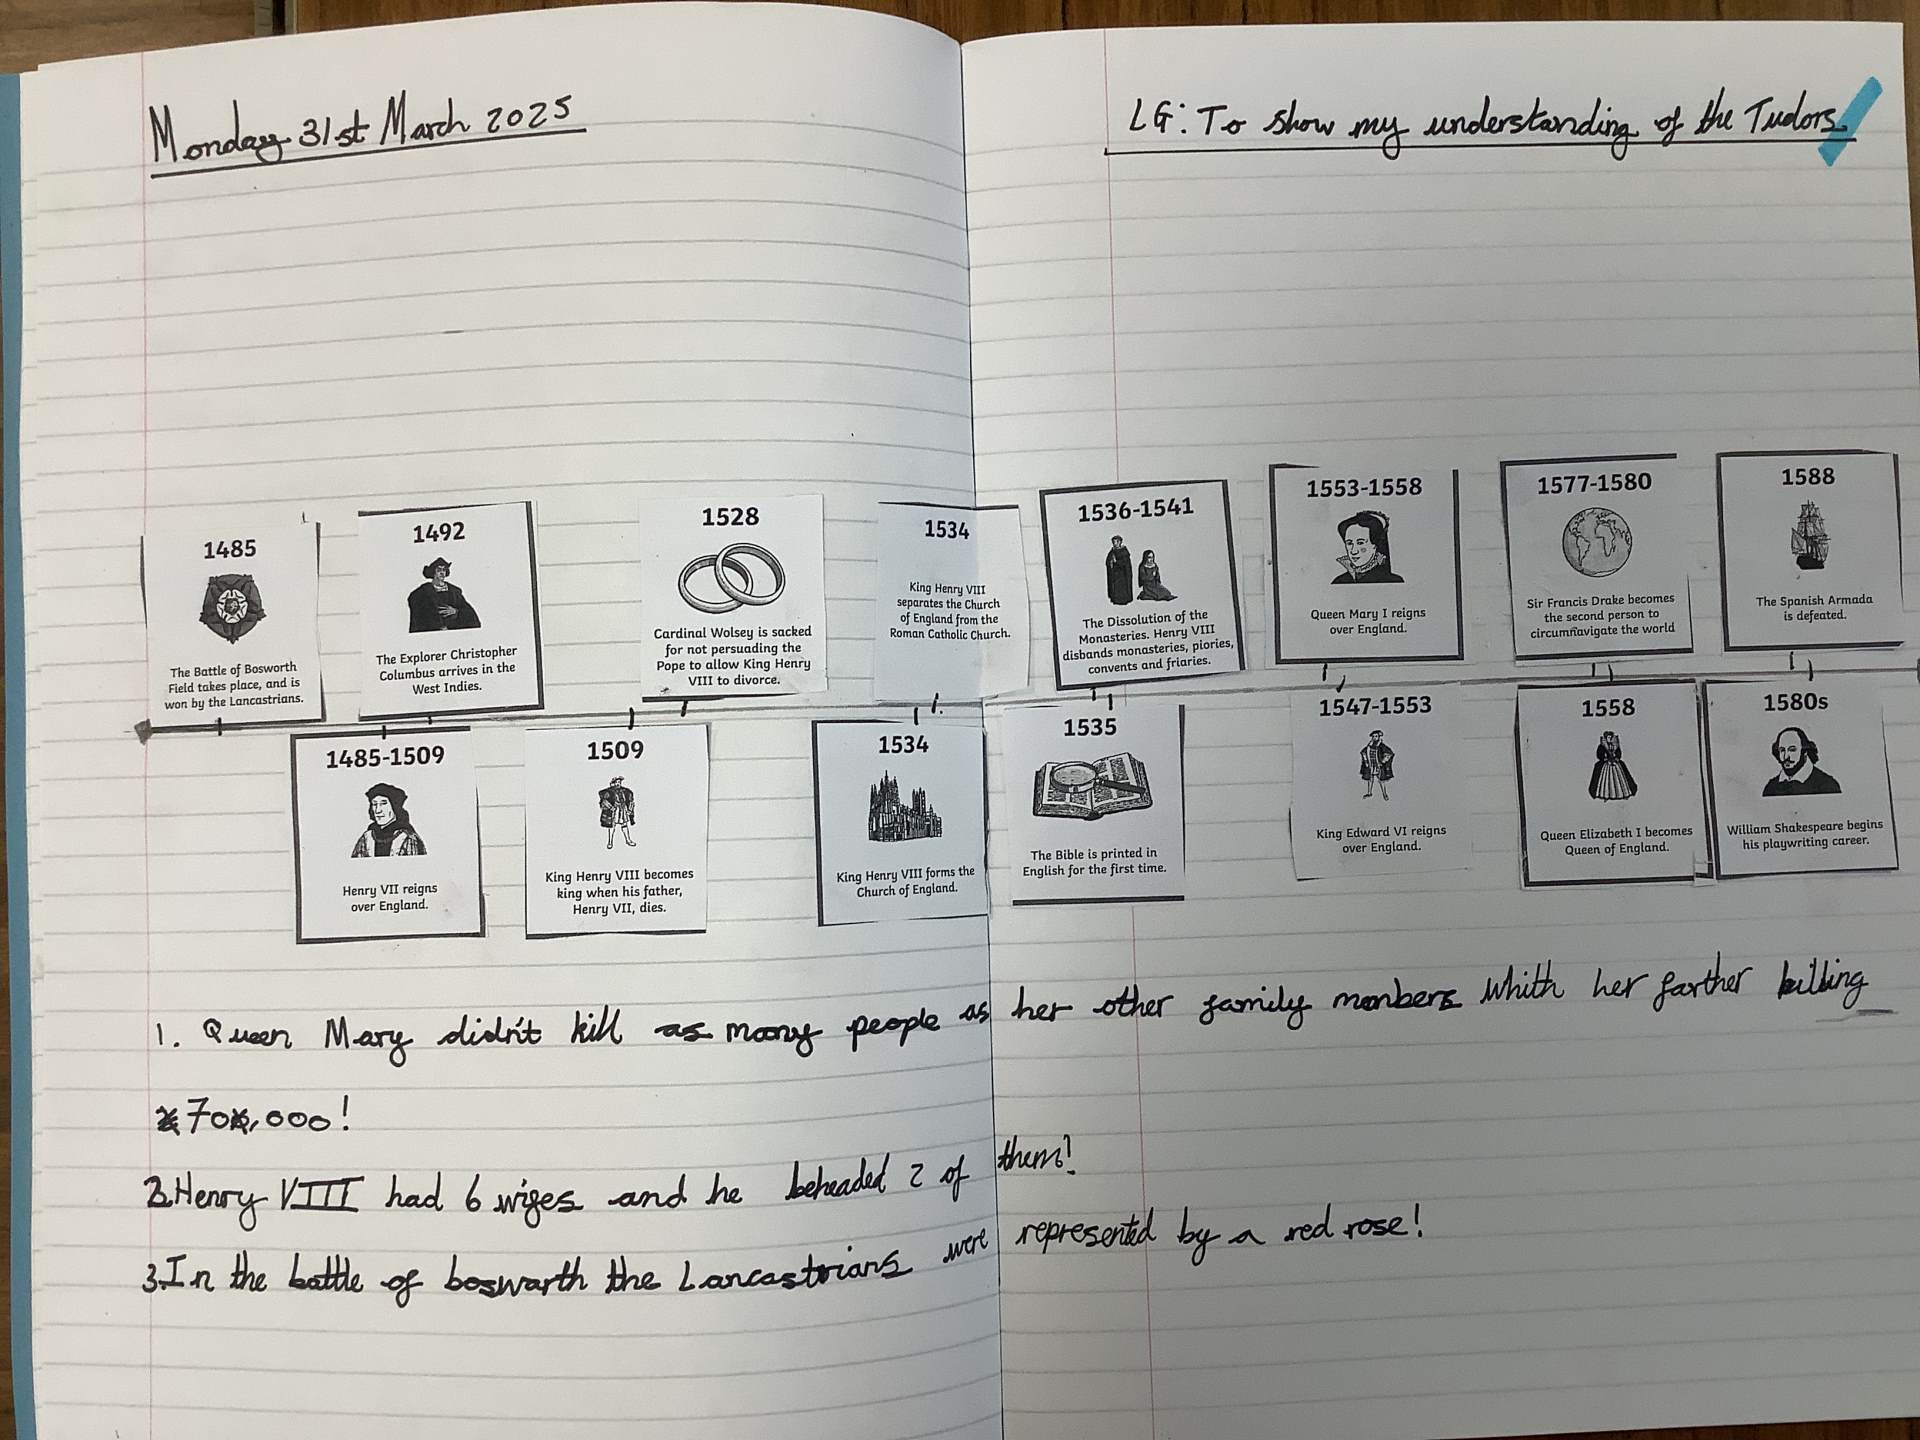 Monday 31st March 2025
LG: To show my understanding of the Tudors
1485
The Battle of Bosworth
Field takes place, and is
won by the Lancastrians.
1492
The Explorer Christopher
Columbus arrives in the
West Indies.
1528
Cardinal Wolsey is sacked
for not persuading the
Pope to allow King Henry
VIII to divorce.
1534
King Henry VIII
separates the Church
of England from the
Roman Catholic Church.
1536-1541
The Dissolution of the
Monasteries. Henry VIII
disbands monasteries, piories,
convents and friaries.
1553-1558
Queen Mary I reigns
over England.
1577-1580
Sir Francis Drake becomes
the second person to
circumnavigate the world
1588
The Spanish Armada
is defeated.
1485-1509
Henry VII reigns
over England.
1509
King Henry VIII becomes
king when his father,
Henry VII, dies.
1534
King Henry VIII forms the
Church of England.
1535
The Bible is printed in
English for the first time.
1547-1553
King Edward VI reigns
over England.
1558
Queen Elizabeth I becomes
Queen of England.
1580s
William Shakespeare begins
his playwriting career.
1. Queen Mary didn't kill as many people as her other family members whith her farther killing
70,000!
2. Henry VIII had 6 wifes and he beheaded 2 of them!
3. In the battle of boswarth the Lancastrians were represented by a red rose!